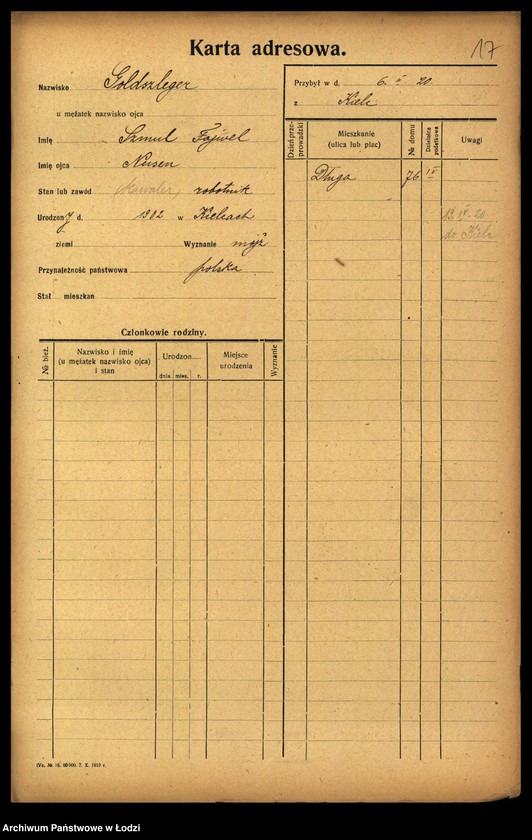 Karta adresowa.
17
Nazwisko Goldszleger
u mężatek nazwisko ojca
Imię Szmul Fajwel
Imię ojca Nusen
Stan lub zawód kawaler, robotnik
Urodzony d. 1902 w Kielcach
ziemi Wyznanie mojż
Przynależność państwowa polska
Stał mieszkan
Przybył w d. 6. II 20
z Kielc
Dzień przeprowadzki
Mieszkanie
(ulica lub plac)
№ domu
Dzielnica podatkowa
Uwagi
Długa 76
do Kielc
Członkowie rodziny.
№ bież.
Nazwisko i imię
(u mężatek nazwisko ojca)
i stan
Urodzon....
dnia mies. r.
Miejsce
urodzenia
Wyznanie
IVc. № 16. 60000. 7. X. 1919 r.
Archiwum Państwowe w Łodzi